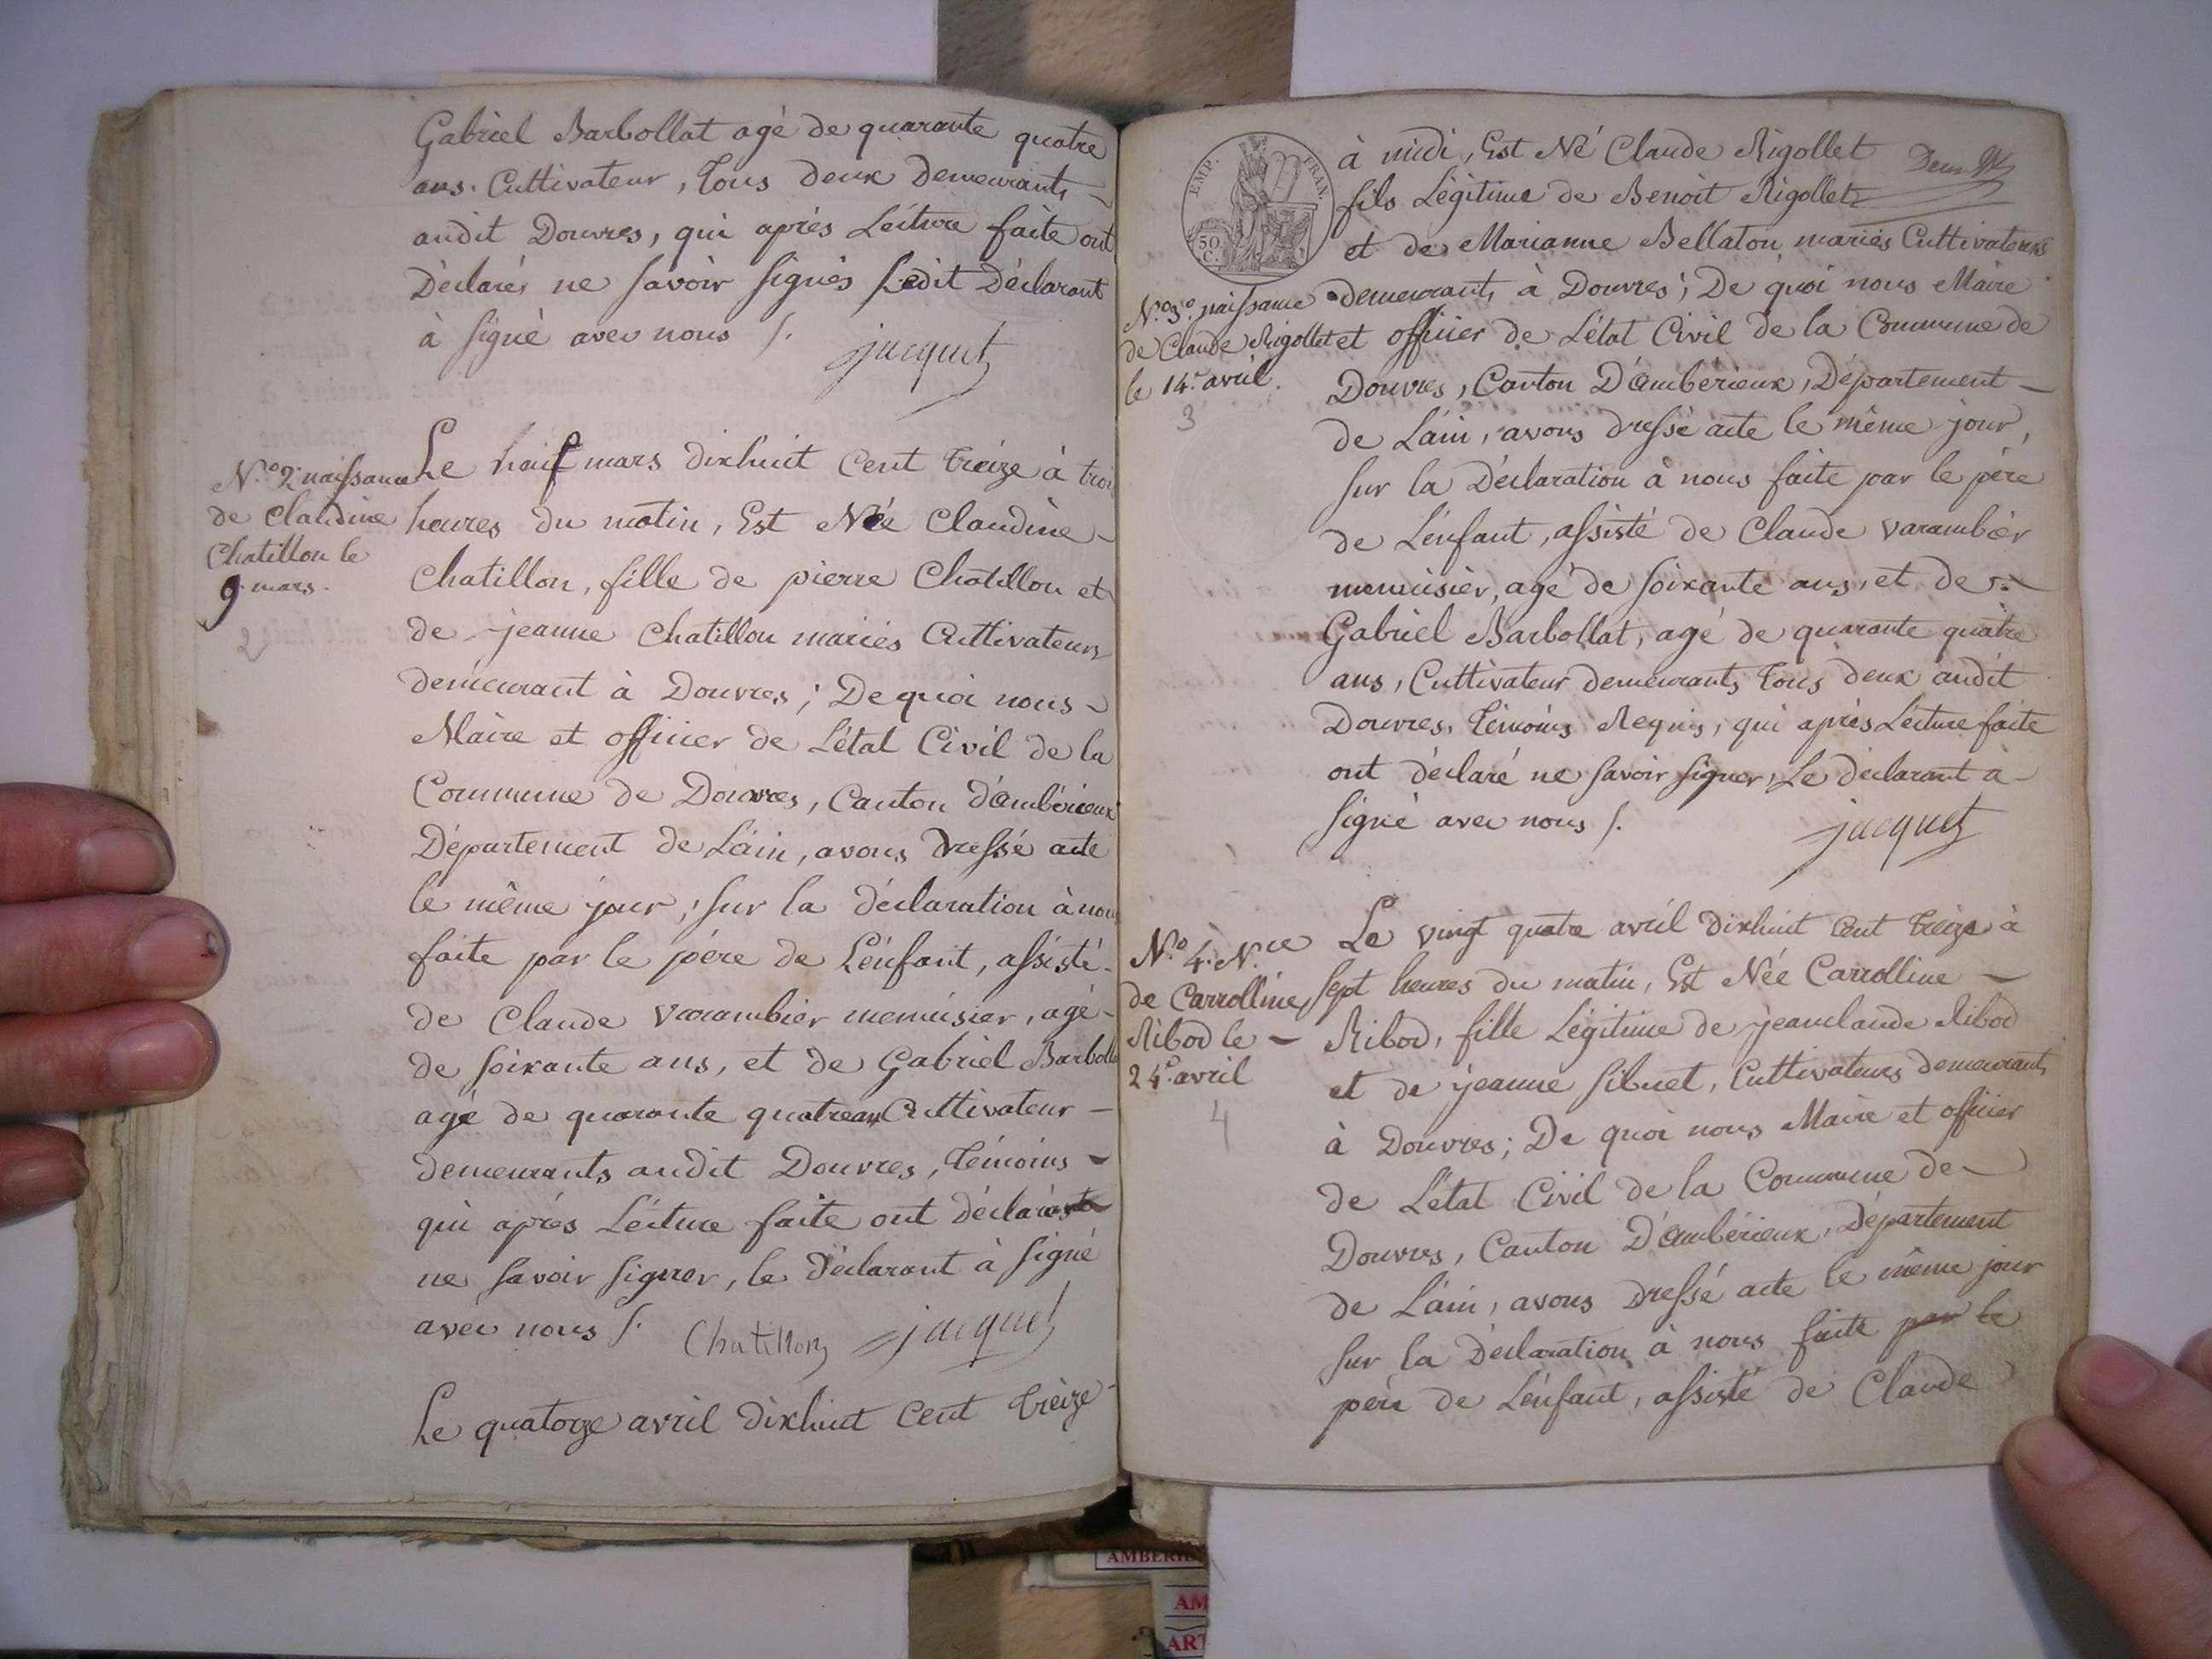 Gabriel Barbollat agé de quarante quatre
ans. Cultivateur, tous deux demeurants
audit Douvres, qui après Lecture faite ont
Déclarés ne savoir signés Ledit Déclarant
à signé avec nous /.
jacquet
N.º 2 naissance
de Claudine
Chatillon le
9 mars.
2
Le neuf mars dixhuit cent treize à trois
heures du matin, Est Née Claudine
Chatillon, fille de pierre Chatillon et
de jeanne Chatillon mariés Cultivateurs
demeurant à Douvres; De quoi nous
Maire et officier de L'état Civil de la
Commune de Douvres, Canton d'ambérieux
Département de L'ain, avons dressé acte
le même jour, sur la déclaration à nous
faite par le père de L'enfant, assisté
de Claude varambier menuisier, agé
de soixante ans, et de Gabriel Barbolla
agé de quarante quatre ans Cultivateur
demeurants audit Douvres, témoins
qui après Lecture faite ont déclarés
ne savoir signer, le déclarant à signé
avec nous /.
Chatillon jacquet
Le quatorze avril dixhuit cent treize
EMP. FRAN.
50.
C.
à midi, Est Né Claude Rigollet
fils Légitime de Benoit Rigollet
et de Marianne Bellaton mariés Cultivateurs
demeurants à Douvres; De quoi nous Maire
et officier de L'état Civil de la Commune de
Douvres, Canton D'ambérieux, Département
de L'ain, avons dressé acte le même jour,
sur la Déclaration à nous faite par le père
de L'enfant, assisté de Claude varambier
menuisier, agé de soixante ans, et de
Gabriel Barbollat, agé de quarante quatre
ans, Cultivateur demeurants tous deux audit
Douvres, témoins Requis, qui après Lecture faite
ont déclaré ne savoir signer, Le déclarant a
signé avec nous /.
jacquet
N.º 3.º naissance
de Claude Rigollet
le 14.e avril.
3
N.º 4. N.ce
de Carrolline
Ribod le
24.e avril
4
Le vingt quatre avril dixhuit cent treize à
sept heures du matin, Est Née Carrolline
Ribod, fille Légitime de jeanclaude Ribod
et de jeanne sibuet, Cultivateurs demeurants
à Douvres; De quoi nous Maire et officier
de L'état Civil de la Commune de
Douvres, Canton D'ambérieux, Département
de L'ain, avons dressé acte le même jour
sur la Déclaration à nous faite par le
père de L'enfant, assisté de Claude
AMBERIE
AM
ART